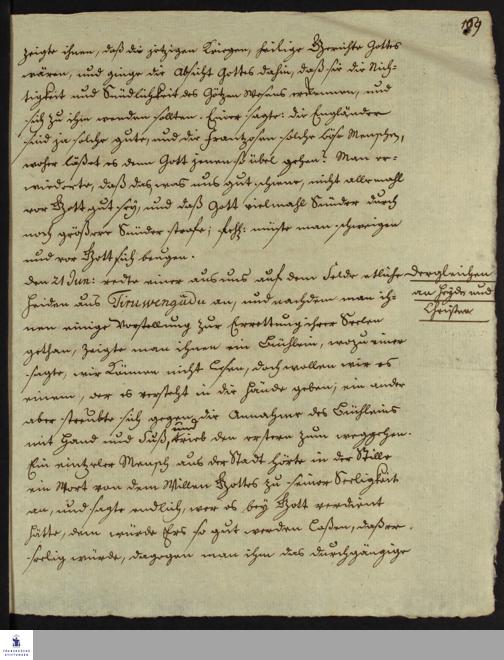 199
zeigte ihnen, daß die jetzigen Kriege, heilige Gerichte Gottes
wären, und ginge die Absicht Gottes dahin, daß sie die Nich-
tigkeit und Sündlichkeit des Götzen Wesens erkennen, und
sich zu ihm wenden sollten. Einer sagte: die Engländer
sind ja solche gute, und die Frantzosen solche böse Menschen,
woher läßet es dem Gott jenen so übel gehen? Man er-
wiederte, daß das, was uns gut schiene, nicht allemahl
vor Gott gut sey, und daß Gott vielmahl Sünder durch
noch größere Sünder strafe; müste man schweigen
und vor Gott sich beugen.
den 21 Jun: redte einer aus uns auf dem Felde etliche
Heiden aus Tiruwengadu an, und nachdem man ih-
nen einige Vorstellung zur Errettung ihrer Seelen
gethan, zeigte man ihnen ein Büchlein, wozu einer
sagte, wir können nicht lesen, doch wollen wir es
einem, der es verstehet in die Hände geben; ein ander
aber sträubte sich gegen die Annahme des Büchleins
mit Hand und Fuß, und trieb den erstern zum weggehen.
Ein eintzeler Mensch aus der Stadt hörte in der Stille
ein Wort von dem Willen Gottes zu seiner Seeligkeit
an, und sagte endlich, wer es bey Gott verdient
hätte, dem würde Ers so gut werden laßen, daß er
seelig würde, dagegen man ihm das durchgängige
dergleichen
an Heyden und
Christen
FRANCKESCHE
STIFTUNGEN